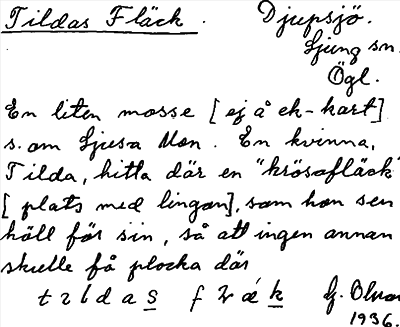 Tildas Fläck. Djupsjö.
Ljung sn.
Ögl.
En liten mosse [ej å ek-kart]
s. om Ljusa Mon. En kvinna,
Tilda, hitta där en "krösafläck"
[plats med lingon], som hon sen
höll för sin, så att ingen annan
skulle få plocka där
G.
1936.